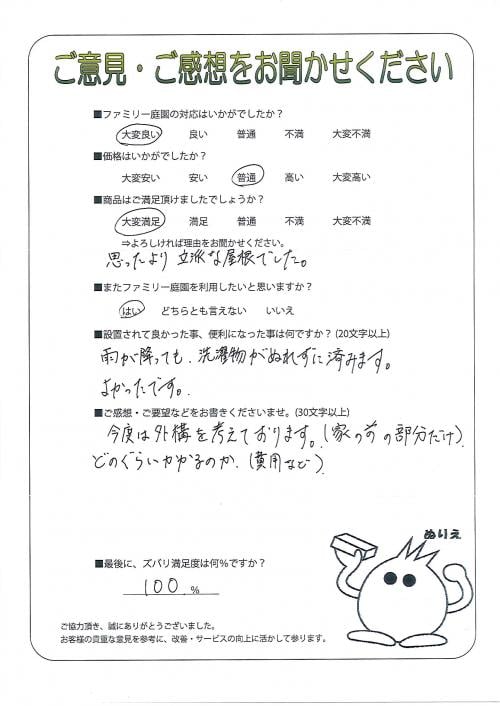 ご意見・ご感想をお聞かせください
■ファミリー庭園の対応はいかがでしたか?
大変良い 良い 普通 不満 大変不満
■価格はいかがでしたか?
大変安い 安い 普通 高い 大変高い
■商品はご満足頂けましたでしょうか?
大変満足 満足 普通 不満 大変不満
⇒よろしければ理由をお聞かせください。
思ったより 立派な屋根でした。
■またファミリー庭園を利用したいと思いますか?
はい どちらとも言えない いいえ
■設置されて良かった事、便利になった事は何ですか? (20文字以上)
雨が降っても、洗濯物がぬれずに済みます。
よかったです。
■ご感想・ご要望などをお書きくださいませ。(30文字以上)
今度は外構を考えております。(家の前の部分だけ)
どのぐらいかかるのか、(費用など)
ぬりえ
■最後に、ズバリ満足度は何%ですか?
100 %
ご協力頂き、誠にありがとうございました。
お客様の貴重な意見を参考に、改善・サービスの向上に活かして参ります。